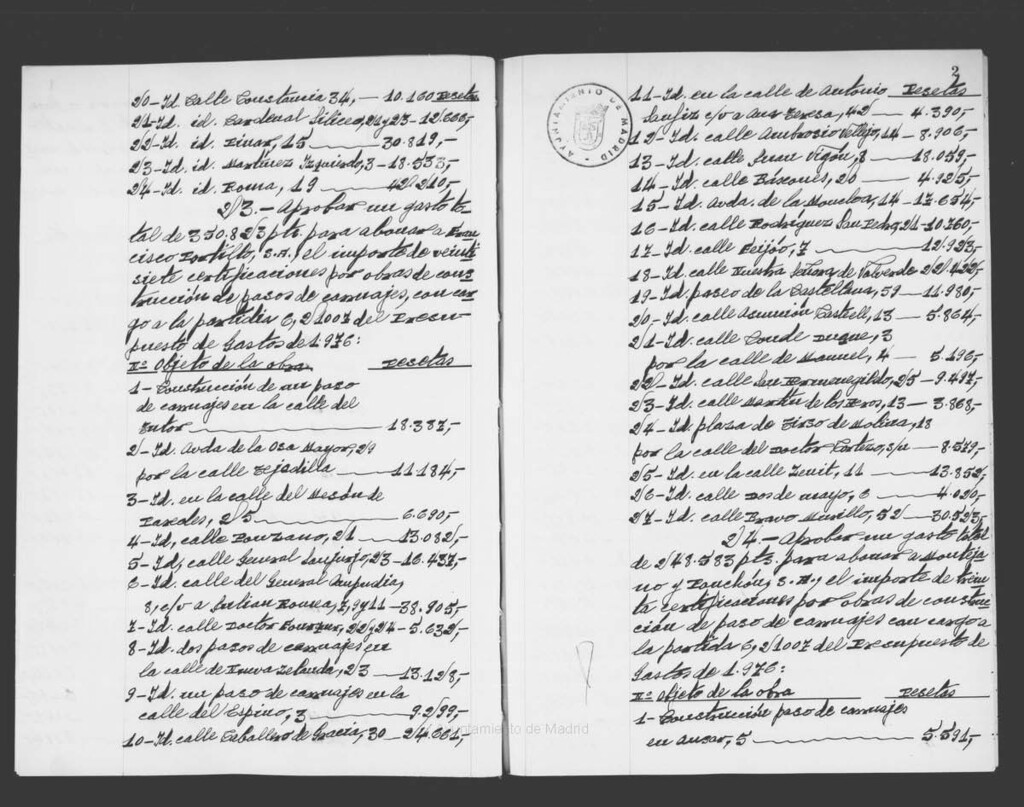 20-Id. Calle Constancia 34, — 10.160 Pesetas
21-Id. id. Cardenal Silíceo, 21 y 23- 12.600,-
22-Id. id. Pinar, 15 — 30.819,-
23-Id. id. Martínez Izquierdo, 3 - 18.533,-
24-Id. id. Roma, 19 — 42.210,-
2/3.- Aprobar un gasto to-
tal de 350.823 pts. para abonar a Fran-
cisco Portillo, S.A., el importe de veinti-
siete certificaciones por obras de cons-
trucción de pasos de carruajes, con car-
go a la partida 6,21007 del Presu-
puesto de Gastos de 1.976:
Nº Objeto de la obra Pesetas
1- Construcción de un paso
de carruajes en la calle del
Tutor — 18.387,-
2-Id. Avda de la Osa Mayor, 29
por la calle Tejadilla — 11.184,-
3-Id. en la calle del Mesón de
Paredes, 25 — 6.690,-
4-Id, calle Ponzano, 21 — 13.082,-
5-Id, calle General Sanjurjo, 23-16.437,-
6-Id. calle del General Ampudia,
8, c/v a Julian Romea, 7, 9 y 11 — 38.905,-
7-Id. calle Doctor 22 y 24 - 5.632,-
8-Id. dos pasos de carruajes en
la calle de Nueva Zelanda, 23 — 13.128,-
9-Id. un paso de carruajes en la
calle del Espino, 3 — 9.299,-
10-Id. calle Caballero de Gracia, 30 — 24.661,-
Ayuntamiento de Madrid
3
AYUNTAMIENTO DE MADRID
11-Id. en la calle de Antonio Pesetas
c/v a Ana Teresa, 42 — 4.390,-
12-Id. calle Ambrosio Vallejo, 14 - 8.906,-
13-Id. calle Juan Vigón, 8 — 18.059,-
14-Id. calle Báscones, 20 — 4.925,-
15-Id. Avda. de la Moncloa, 14 - 17.654,-
16-Id. calle Rodríguez San Pedro, 21-10.760,-
17-Id. calle Feijóo, 7 — 12.923,-
18-Id. calle Nuestra Señora de Valverde 22.422,-
19-Id. paseo de la Castellana, 59 — 11.980,-
20-Id. calle Asunción Castell, 13 — 5.864,-
21-Id. calle Conde Duque, 3
por la calle de Manuel, 4 — 5.196,-
22-Id. calle San Hermenegildo, 25 - 9.497,-
23-Id. calle Martín de los Heros, 13 — 3.868,-
24-Id. plaza de Tirso de Molina, 18
por la calle del Doctor Cortezo, s/n — 8.579,-
25-Id. en la calle Zenit, 11 — 13.852,-
26-Id. calle Dos de mayo, 6 — 4.020,-
27-Id. calle Bravo Murillo, 52 — 30.523,-
2/4.- Aprobar un gasto total
de 248.583 pts. para abonar a Monteja-
no y Ponchón, S.A., el importe de trein-
ta certificaciones por obras de construc-
ción de paso de carruajes con cargo a
la partida 6,21007 del Presupuesto de
Gastos de 1.976:
Nº Objeto de la obra Pesetas
1- Construcción paso de carruajes
en Ansar, 5 — 5.591,-